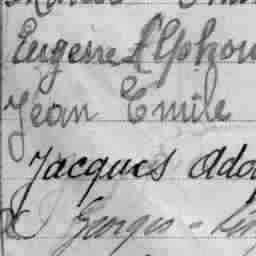 Eugene Alphon
Jean Emile
Jacques Ado
Georges -